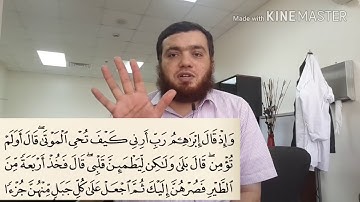 Made with KINEMASTER
وَإِذْ قَالَ إِبْرَٰهِـۧمُ رَبِّ أَرِنِى كَيْفَ تُحْىِ ٱلْمَوْتَىٰ ۖ قَالَ أَوَلَمْ
تُؤْمِن ۖ قَالَ بَلَىٰ وَلَـٰكِن لِّيَطْمَئِنَّ قَلْبِى ۖ قَالَ فَخُذْ أَرْبَعَةً مِّنَ
ٱلطَّيْرِ فَصُرْهُنَّ إِلَيْكَ ثُمَّ ٱجْعَلْ عَلَىٰ كُلِّ جَبَلٍ مِّنْهُنَّ جُزْءًا